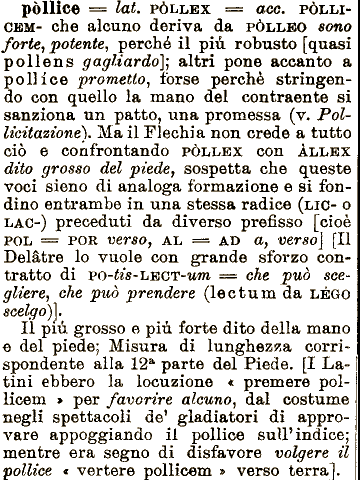 pòllice = lat. PÒLLEX = acc. PÒLLI-
CEM- che alcuno deriva da PÒLLEO sono
forte, potente, perché il piú robusto [quasi
pollens gagliardo]; altri pone accanto a
polliceo prometto, forse perchè stringen-
do con quello la mano del contraente si
sanziona un patto, una promessa (v. Pol-
licitazione). Ma il Flechia non crede a tutto
ciò e confrontando PÒLLEX con ÀLLEX
dito grosso del piede, sospetta che queste
voci sieno di analoga formazione e si fon-
dino entrambe in una stessa radice (LIC- o
LAC-) preceduti da diverso prefisso [cioè
POL = POR verso, AL = AD a, verso] [Il
Delâtre lo vuole con grande sforzo con-
tratto di PO-tis-LECT-um = che può sce-
gliere, che può prendere (lectum da LÈGO
scelgo)].
Il piú grosso e piú forte dito della mano
e del piede; Misura di lunghezza corri-
spondente alla 12ª parte del Piede. [I La-
tini ebbero la locuzione « premere pol-
licem » per favorire alcuno, dal costume
negli spettacoli de' gladiatori di appro-
vare appoggiando il pollice sull'indice;
mentre era segno di disfavore volgere il
pollice « vertere pollicem » verso terra].